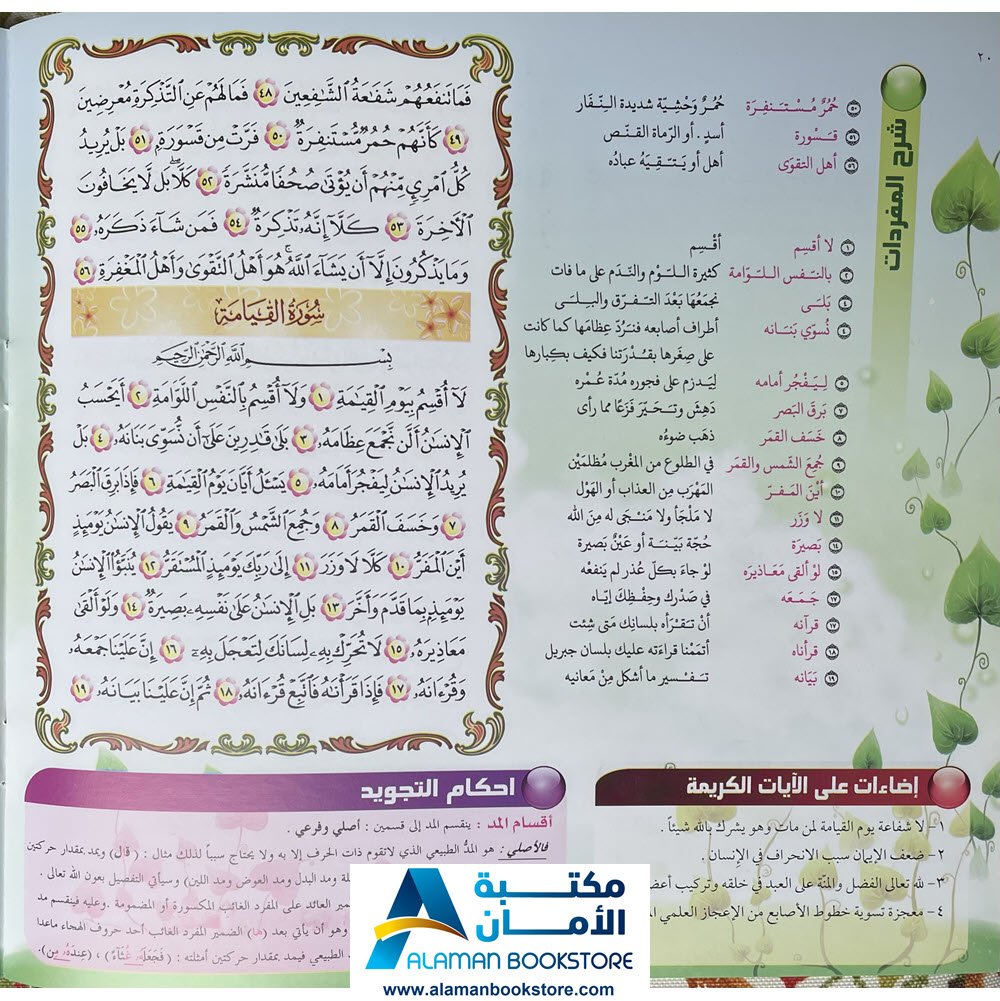 ٢٠
شرح المفردات
٥٠ حُمُرٌ مُسْتَنفِرَة حُمُرٌ وَحْشِيَّة شديدة النِّفَار
٥١ قَسْوَرة أسدٍ - أو الرّماة القنّص
٥٦ أهل التقوَى أهل أو يَتَّقِيَهُ عبادُه
١ لا أقسِم أقْسِم
٢ بالنّفس اللوّامة كثيرة اللوْم والنّدَم على ما فات
٤ بَلَى نجمَعُهَا بَعْدَ التفرّق والبِلَى
٤ نُسوّيَ بَنَانه أطراف أصابعه فنَرُدّ عِظامَها كما كانت
على صِغَرها بقُدْرَتنا فكيف بكِبارها
٥ لِيَفْجُر أمامه لِيَدزم على فجوره مُدّة عُمْره
٧ بَرقَ البَصَر دَهِش وتحَيّرَ فزَعًا مما رأى
٨ خَسَف القمَر ذهَب ضوءُه
٩ جُمِعَ الشّمس والقمَر في الطلوع من المغْرب مُظلمَيْن
١٠ أيْنَ المَفرّ المَهْرَب مِن العذاب أو الهَوْل
١١ لا وَزَر لا مَلْجَأ ولا مَنْجَى له مِنَ الله
١٤ بَصِيرَة حُجّة بَيّنَة أو عَيْنٌ بَصيرة
١٥ لوْ ألقى مَعَاذيرَه لوْ جاءَ بكلّ عُذر لم يَنفعْه
١٧ جَمْعَه في صَدْرك وحِفظكَ إيّاه
١٧ قرآنه أنْ تقْرَأه بلسانِك مَتى شِئت
١٨ قرأناه أتمَمْنا قراءَته عليك بلسان جبريل
١٩ بَيَانه تفسير ما أشكل مِنْ مَعانيه
فَمَا تَنفَعُهُمْ شَفَٰعَةُ ٱلشَّٰفِعِينَ ٤٨ فَمَا لَهُمْ عَنِ ٱلتَّذْكِرَةِ مُعْرِضِينَ
٤٩ كَأَنَّهُمْ حُمُرٌ مُّسْتَنفِرَةٌ ٥٠ فَرَّتْ مِن قَسْوَرَةٍۭ ٥١ بَلْ يُرِيدُ
كُلُّ ٱمْرِئٍ مِّنْهُمْ أَن يُؤْتَىٰ صُحُفًا مُّنَشَّرَةً ٥٢ كَلَّا ۖ بَل لَّا يَخَافُونَ
ٱلْءَاخِرَةَ ٥٣ كَلَّآ إِنَّهُۥ تَذْكِرَةٌ ٥٤ فَمَن شَآءَ ذَكَرَهُۥ ٥٥
وَمَا يَذْكُرُونَ إِلَّآ أَن يَشَآءَ ٱللَّهُ ۚ هُوَ أَهْلُ ٱلتَّقْوَىٰ وَأَهْلُ ٱلْمَغْفِرَةِ ٥٦
سُورَةُ القِيَامَةِ
بِسْمِ ٱللَّهِ ٱلرَّحْمَٰنِ ٱلرَّحِيمِ
لَآ أُقْسِمُ بِيَوْمِ ٱلْقِيَٰمَةِ ١ وَلَآ أُقْسِمُ بِٱلنَّفْسِ ٱللَّوَّامَةِ ٢ أَيَحْسَبُ
ٱلْإِنسَٰنُ أَلَّن نَّجْمَعَ عِظَامَهُۥ ٣ بَلَىٰ قَٰدِرِينَ عَلَىٰٓ أَن نُّسَوِّىَ بَنَانَهُۥ ٤ بَلْ
يُرِيدُ ٱلْإِنسَٰنُ لِيَفْجُرَ أَمَامَهُۥ ٥ يَسْـَٔلُ أَيَّانَ يَوْمُ ٱلْقِيَٰمَةِ ٦ فَإِذَا بَرِقَ ٱلْبَصَرُ
٧ وَخَسَفَ ٱلْقَمَرُ ٨ وَجُمِعَ ٱلشَّمْسُ وَٱلْقَمَرُ ٩ يَقُولُ ٱلْإِنسَٰنُ يَوْمَئِذٍ
أَيْنَ ٱلْمَفَرُّ ١٠ كَلَّا لَا وَزَرَ ١١ إِلَىٰ رَبِّكَ يَوْمَئِذٍ ٱلْمُسْتَقَرُّ ١٢ يُنَبَّؤُا۟ ٱلْإِنسَٰنُ
يَوْمَئِذٍۭ بِمَا قَدَّمَ وَأَخَّرَ ١٣ بَلِ ٱلْإِنسَٰنُ عَلَىٰ نَفْسِهِۦ بَصِيرَةٌ ١٤ وَلَوْ أَلْقَىٰ
مَعَاذِيرَهُۥ ١٥ لَا تُحَرِّكْ بِهِۦ لِسَانَكَ لِتَعْجَلَ بِهِۦٓ ١٦ إِنَّ عَلَيْنَا جَمْعَهُۥ
وَقُرْءَانَهُۥ ١٧ فَإِذَا قَرَأْنَٰهُ فَٱتَّبِعْ قُرْءَانَهُۥ ١٨ ثُمَّ إِنَّ عَلَيْنَا بَيَانَهُۥ ١٩
إضاءات على الآيات الكريمة
١- لا شفاعة يوم القيامة لمن مات وهو يشرك بالله شيئاً .
٢- ضعف الإيمان سبب الانحراف في الإنسان .
٣- لله تعالى الفضل والمنّة على العبد في خلقه وتركيب
٤- معجزة تسوية خطوط الأصابع من الإعجاز العلمي
احكام التجويد
أقسام المد : ينقسم المد إلى قسمين : أصلي وفرعي .
فالأصلي : هو المدُّ الطبيعي الذي لاتقوم ذات الحرف إلا به ولا يحتاج سبباً لذلك مثال : ( قال) ويمد بمقدار حركتين
ومد البدل ومد العوض ومد اللين) وسيأتي التفصيل بعون الله تعالى .
العائد على المفرد الغائب المكسورة أو المضمومة .وعليه فينقسم مد
وهو أن يأتي بعد (ها) الضمير المفرد الغائب أحد حروف الهجاء ماعدا
الطبيعي فيمد بمقدار حركتين أمثلته : ( فَجَعَلَهُ غُثَآءً ) ، (عِندَهُ مِن).
مكتبة
الأمان
ALAMAN BOOKSTORE
www.alamanbookstore.com